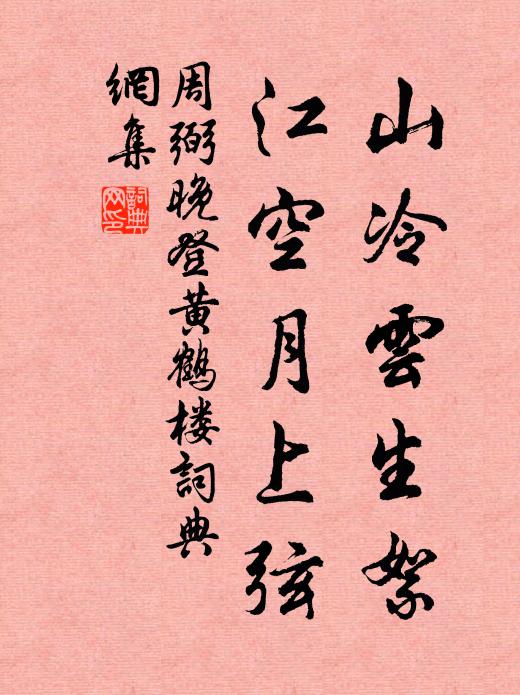 山冷雲生絮
江空月上弦
周弼晚登黃鶴楼詞典
網集
詞典
网印